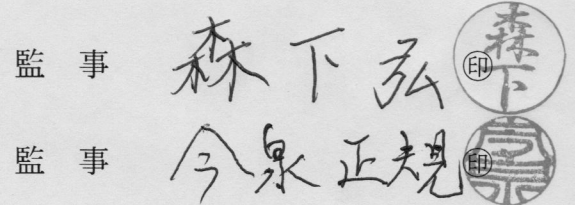 監事 森下弘 ㊞ 森下
監事 今泉正規 ㊞